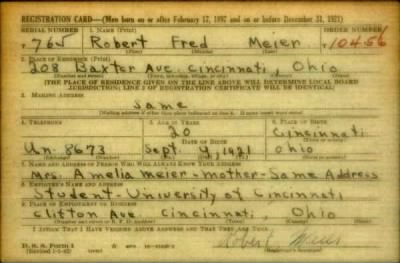 REGISTRATION CARD—(Men born on or after February 17, 1897 and on or before December 31, 1921)
SERIAL NUMBER 1. NAME (Print) ORDER NUMBER
T 765 Robert Fred Meier 10456
(First) (Middle) (Last)
2. PLACE OF RESIDENCE (Print)
208 Baxter Ave. Cincinnati, Ohio
(Number and street) (Town, township, village, or city) (County) (State)
(THE PLACE OF RESIDENCE GIVEN ON THE LINE ABOVE WILL DETERMINE LOCAL BOARD
JURISDICTION; LINE 2 OF REGISTRATION CERTIFICATE WILL BE IDENTICAL)
3. MAILING ADDRESS
Same
(Mailing address if other than place indicated on line 2. If same insert word same)
4. TELEPHONE 5. AGE IN YEARS 6. PLACE OF BIRTH
20 Cincinnati
DATE OF BIRTH
Un-8673 Sept 4, 1921 Ohio
(Exchange) (Number) (Mo.) (Day) (Yr.) (State or country)
7. NAME AND ADDRESS OF PERSON WHO WILL ALWAYS KNOW YOUR ADDRESS
Mrs. Amelia Meier-mother-Same Address
8. EMPLOYER'S NAME AND ADDRESS
Student-University of Cincinnati
9. PLACE OF EMPLOYMENT OR BUSINESS
Clifton Ave. Cincinnati, Ohio
(Number and street or R. F. D. number) (Town) (County) (State)
I AFFIRM THAT I HAVE VERIFIED ABOVE ANSWERS AND THAT THEY ARE TRUE.
D. S. S. Form 1
Robert Meier